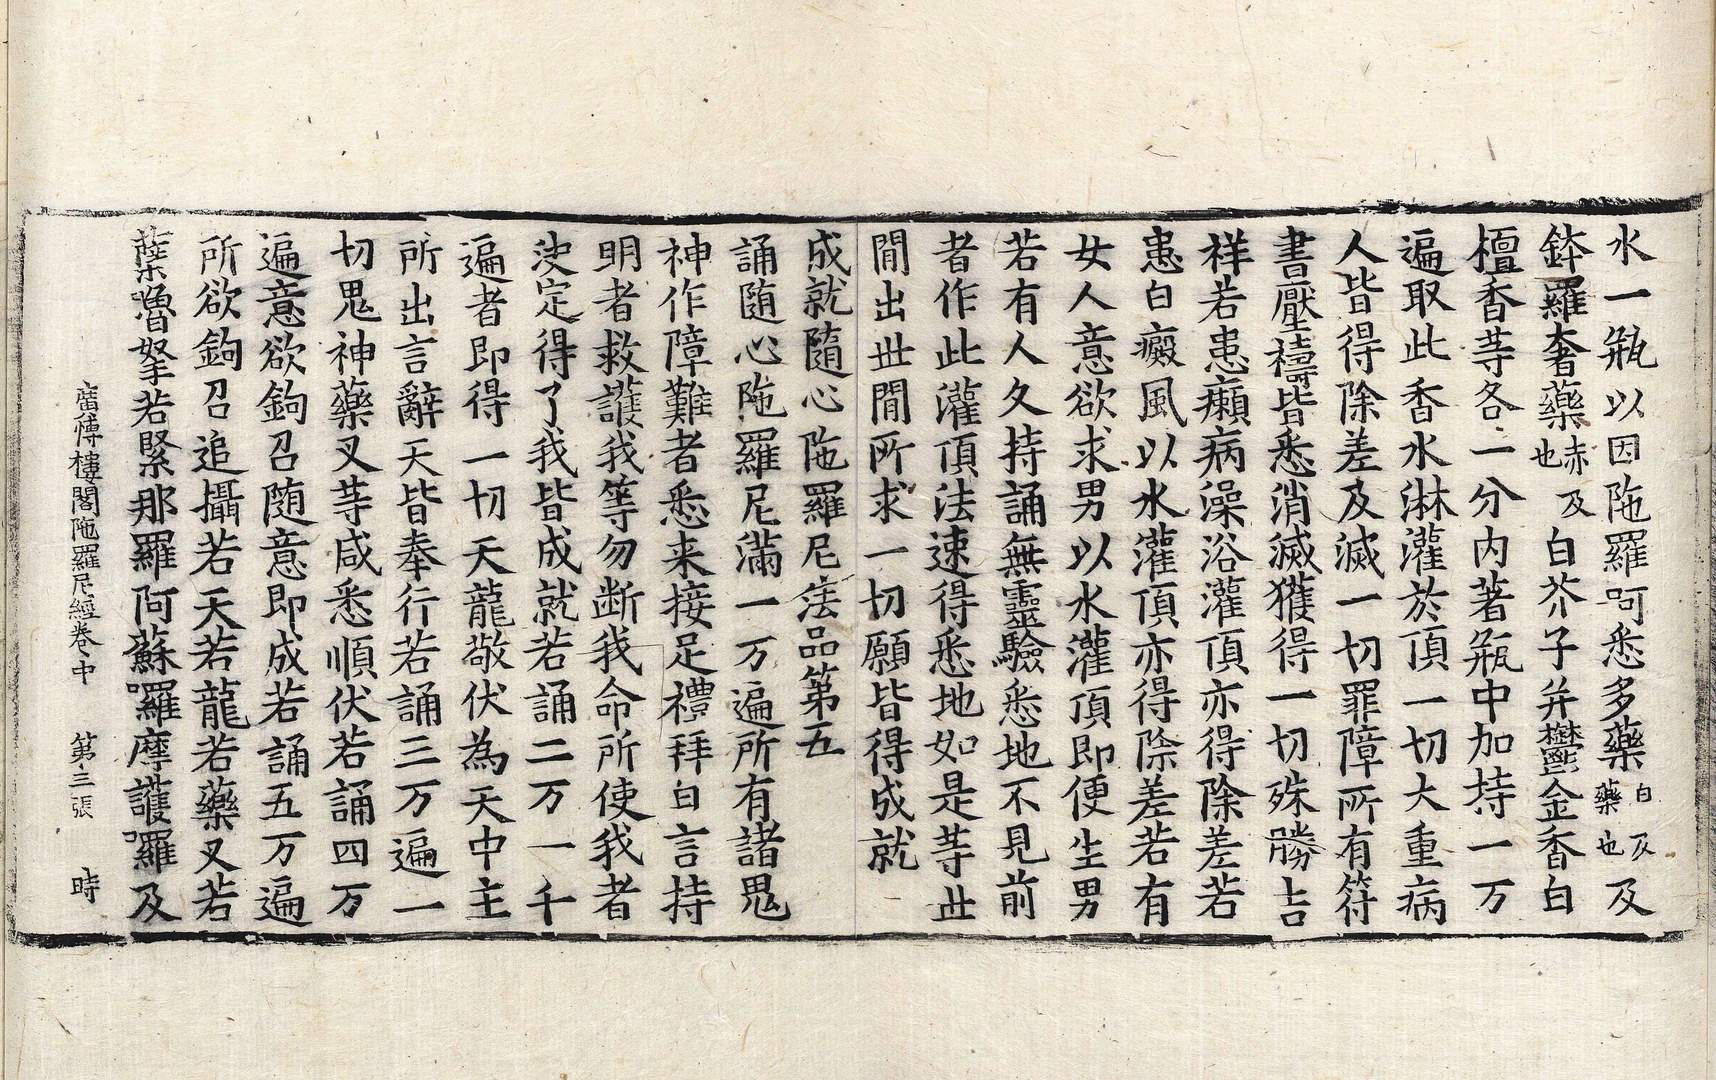 水一瓶以因陁羅呵悉多藥白及藥也及
鉢羅奢藥赤及也白芥子并欝金香白
檀香䓁各一分內著瓶中加持一万
遍取此香水淋灌於頂一切大重病
人皆得除差及滅一切罪障所有符
書壓禱皆悉消滅獲得一切殊勝吉
祥若患癩病澡浴灌頂亦得除差若
患白癜風以水灌頂亦得除差若有
女人意欲求男以水灌頂即便生男
若有人久持誦無靈驗悉地不見前
者作此灌頂法速得悉地如是䓁丗
間出丗間所求一切願皆得成就
成就隨心陁羅尼法品第五
誦隨心陁羅尼滿一万遍所有諸鬼
神作障難者悉来接足禮拜白言持
明者救護我等勿断我命所使我者
決定得了我皆成就若誦二万一千
遍者即得一切天龍敬伏為天中主
所出言辭天皆奉行若誦三万遍一
切鬼神藥叉䓁咸悉順伏若誦四万
遍意欲鉤召随意即成若誦五万遍
所欲鉤召追攝若天若龍若藥叉若
蘗嚕拏若緊那羅阿蘇囉摩護囉及
廣博樓閣陁羅尼經卷中 第三張 時